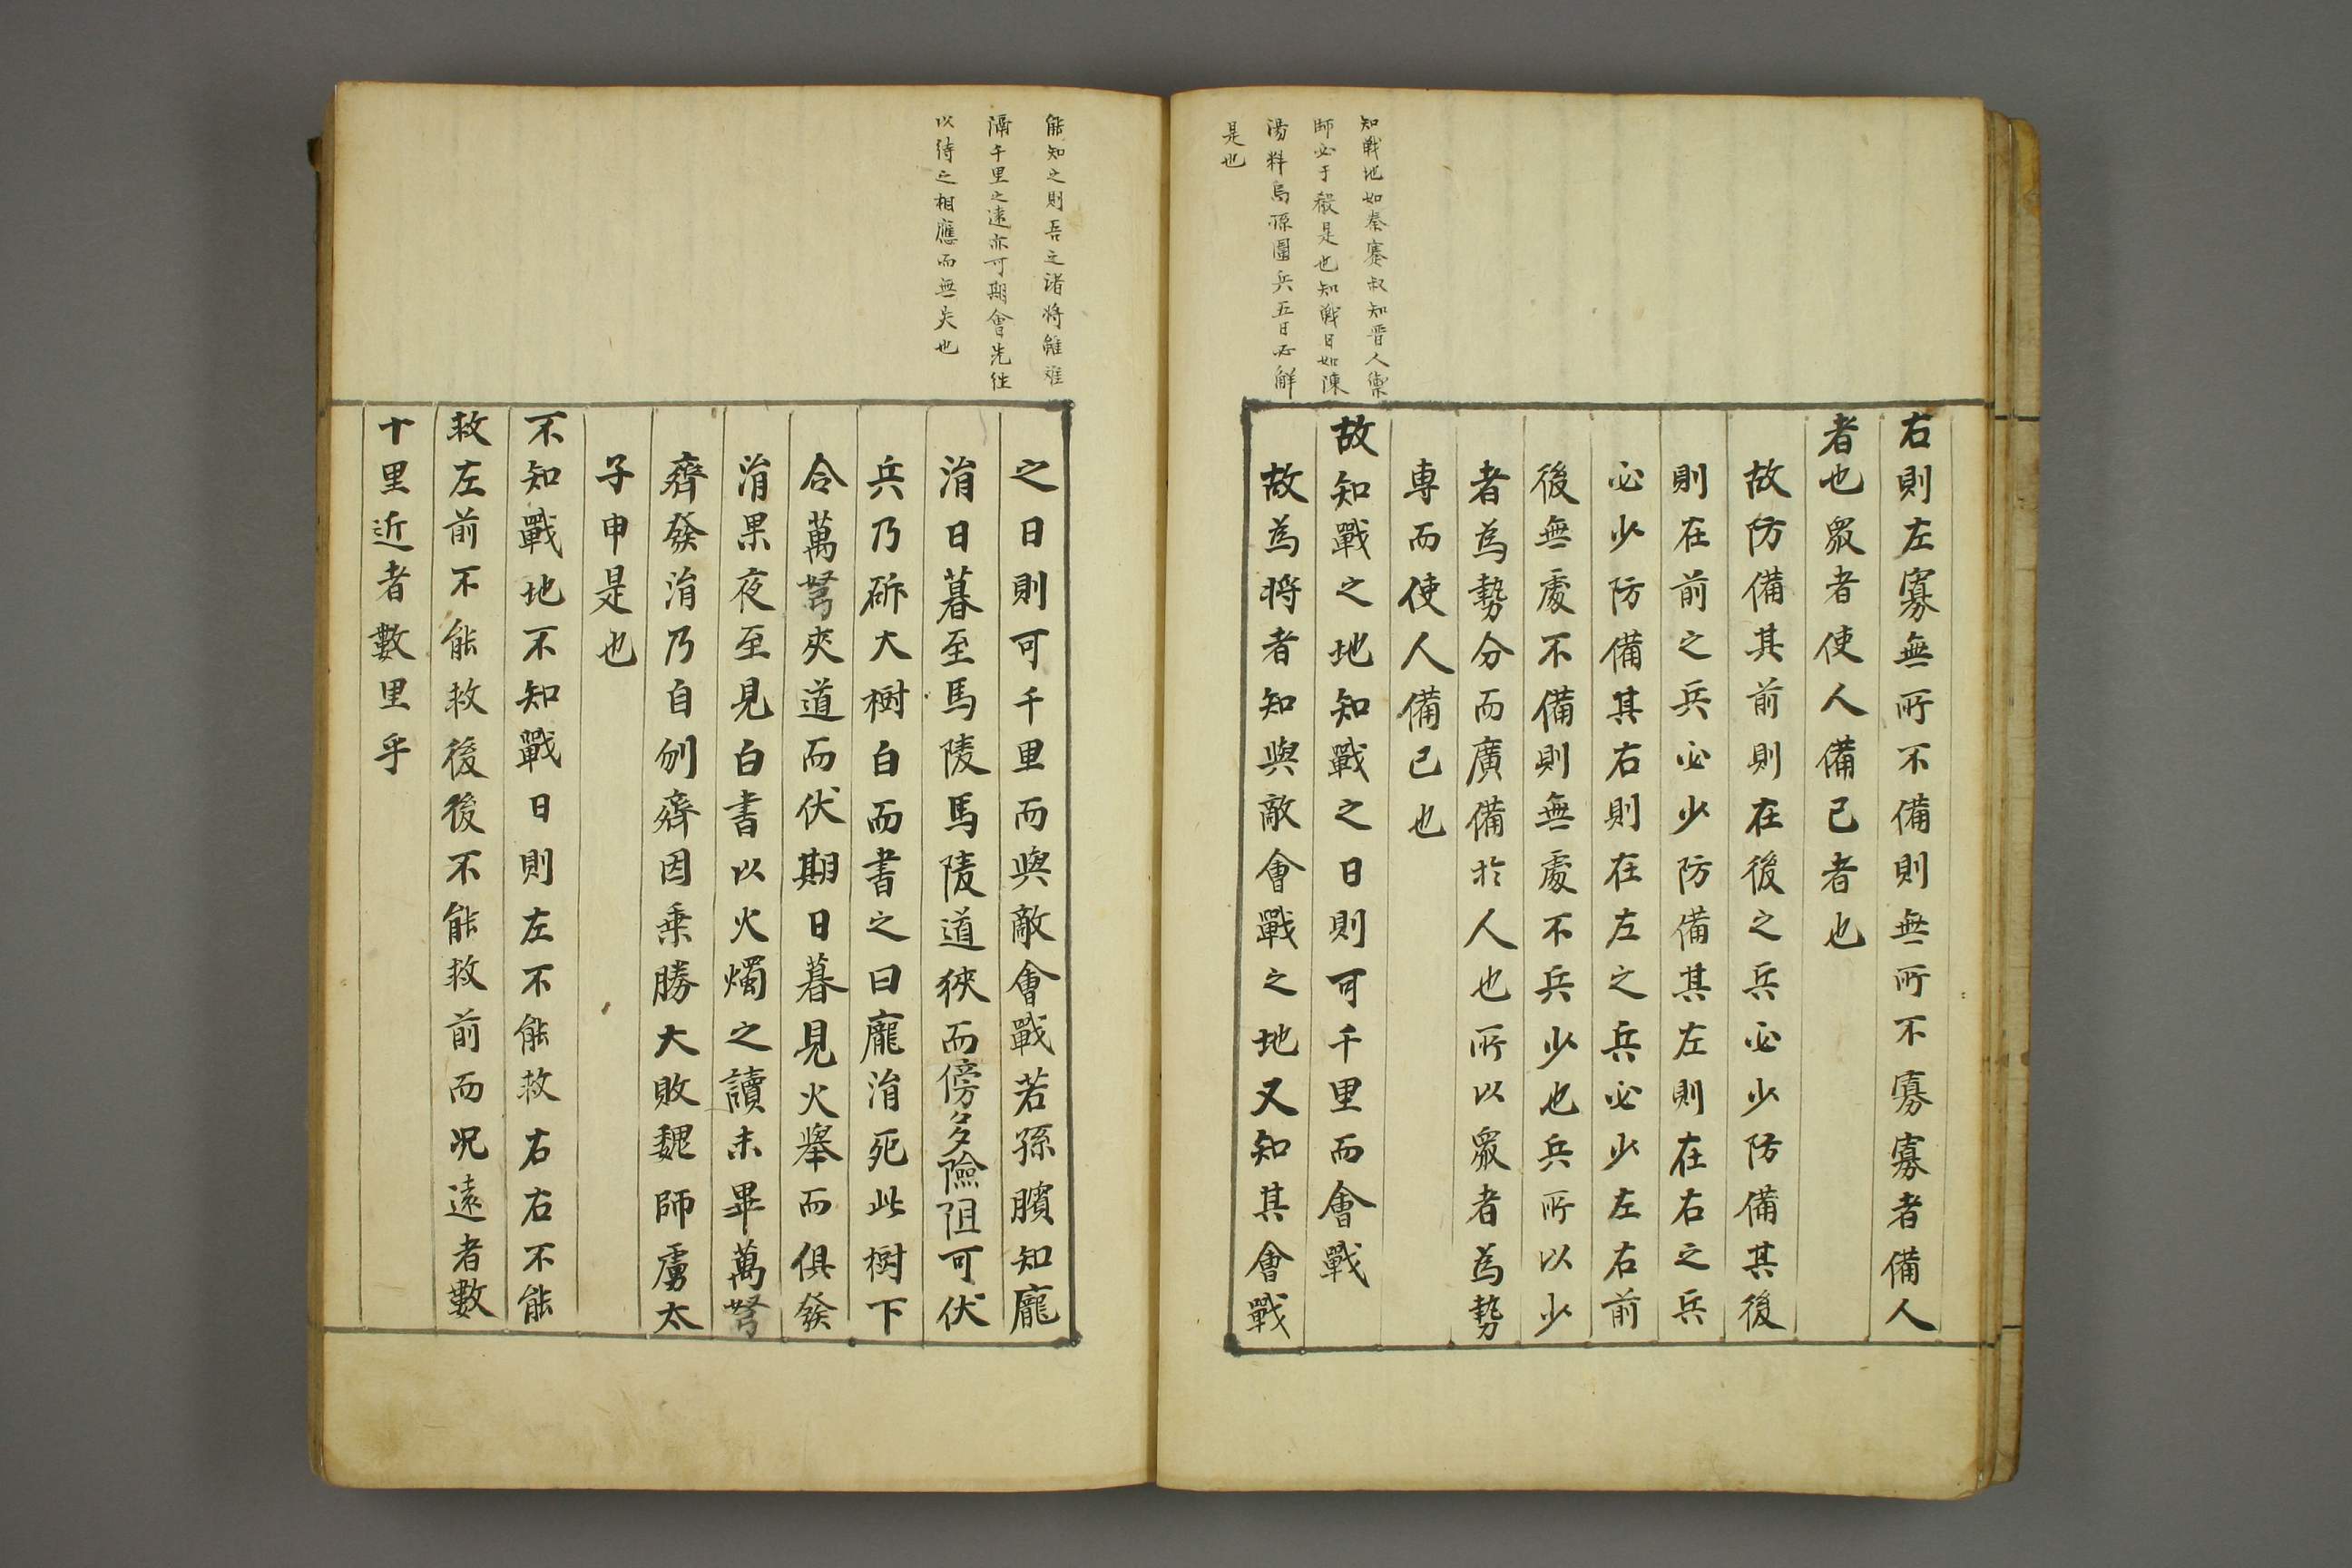 知戰地如秦蹇叔知晋人禦
師必于殽是也知戰日如陳
湯料烏孫圍兵五日必解
是也
右則左寡無所不備則無所不寡寡者備人
者也衆者使人備己者也
故防備其前則在後之兵必少防備其後
則在前之兵必少防備其左則在右之兵
必少防備其右則在左之兵必少左右前
後無處不備則無處不兵少也兵所以少
者為勢分而廣備於人也所以衆者為勢
專而使人備己也
故知戰之地知戰之日則可千里而會戰
故為將者知與敵會戰之地又知其會戰
能知之則吾之諸將雖在
隔千里之遠亦可期會先徃
以待之相應而無失也
之日則可千里而與敵會戰若孫臏知龐
涓日暮至馬陵馬陵道狹而傍多險阻可伏
兵乃斫大樹白而書之曰龐涓死此樹下
令萬弩夾道而伏期日暮見火擧而俱發
涓果夜至見白書以火燭之讀未畢萬弩
齊發涓乃自刎齊因乗勝大敗魏師虜太
子申是也
不知戰地不知戰日則左不能救右右不能
救左前不能救後後不能救前而况遠者數
十里近者數里乎